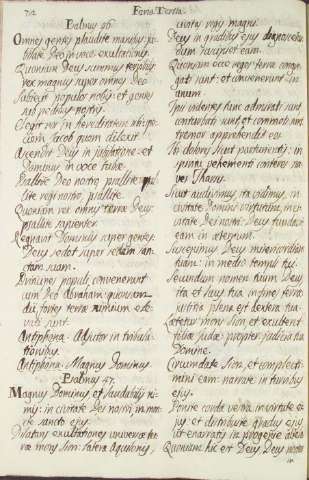 Feria Tertia.
Psalmus 46.
Omnes gentes plaudite manibus: ju-
bilate Deo in voce exultationis.
Quoniam Deus summus terribilis
rex magnus super omnes Deos
Subjecit populos nobis: et gentes
sub pedibus nostris.
Elegit nos in hereditatem
Jacob quam dilexit
Ascendit Deus in jubilatione: et
Dominus in voce tubæ.
Psallite Deo nostro psallite: psal-
lite regi nostro psallite.
Quoniam rex omnis terræ Deus:
psallite sapienter.
Regnavit Dominus super gentes:
Deus sedet super sedem sanc-
tam suam.
Principes populi convenerunt
cum Deo Abraham: quoniam
dii fortes terræ nimium ele-
vati sunt.
Antiphona. Adjutor in tribula-
tionibus.
Antiphona. Magnus Dominus
Psalmus 47.
Magnus Dominus et laudabilis ni-
mis: in civitate Dei nostri in mon-
te sancto ejus.
exultationes universæ ter-
ræ mons Sion: latera Aquilonis,
civitas regis magni.
Deus in gradibus ejus
dum suscipiet eam.
Quoniam ecce reges terræ congre-
gati sunt: et convenerunt in
unum.
Ipsi videntes sunt:
conturbati sunt et commoti sunt
tremor apprehendit eos
Ibi dolores sicut parturientis: in
spiritu vehementi conteres na-
ves Tharsis.
Sicut audivimus ita vidimus, in
civitate Domini virtutum, in ci-
vitate Dei nostri: Deus fundavit
eam in æternum.
Suscepimus Deus misericordiam
tuam: in medio templi tui.
Secundum nomen tuum Deus
ita et laus tua in fines terræ:
justitia plena est dextera tua.
Lætetur mons Sion, et exultent
filiæ judæ: propter judicia tua
Domine.
Circumdate Sion, et complecti-
mini eam: narrate in turribus
ejus.
Ponite corda vestra in virtute e-
jus: et distribuite gradus ejus
ut enarretis in progenie altera
Quoniam hic est Deus, Deus noster
in